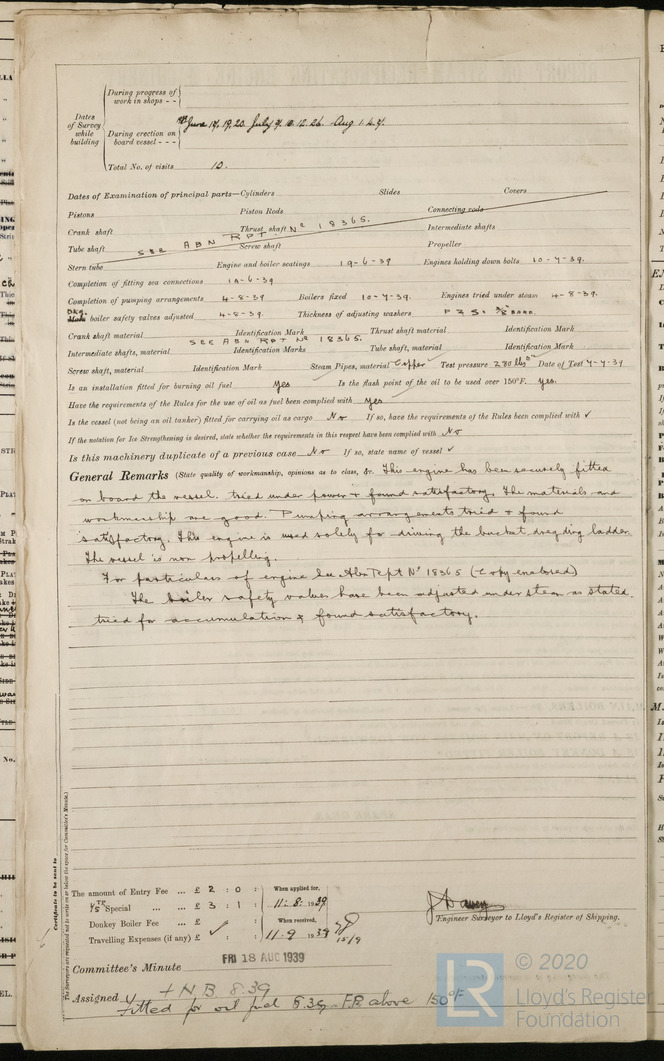 During progress of
work in shops - -
Dates
of Survey
while
building
During erection on
board vessel - - -
June 17, 19, 20. July 9. 10. 12. 26. Aug 1. 4. 7.
Total No. of visits 10.
Dates of Examination of principal parts—Cylinders Slides Covers
Pistons Piston Rods Connecting rods
Crank shaft Thrust shaft Intermediate shafts
SEE ABN RPT No 18365.
Tube shaft Screw shaft Propeller
Stern tube Engine and boiler seatings 19-6-39 Engines holding down bolts 10-7-39.
Completion of fitting sea connections 19-6-39
Completion of pumping arrangements 4-8-39 Boilers fixed 10-7-39. Engines tried under steam 4-8-39.
Dky. Main boiler safety valves adjusted 4-8-39. Thickness of adjusting washers P & S:
Crank shaft material Identification Mark Thrust shaft material Identification Mark
SEE ABN RPT No 18365.
Intermediate shafts, material Identification Marks Tube shaft, material Identification Mark
Screw shaft, material Identification Mark Steam Pipes, material Copper Test pressure 280 lbs □" Date of Test 4-7-39
Is an installation fitted for burning oil fuel yes Is the flash point of the oil to be used over 150°F. yes.
Have the requirements of the Rules for the use of oil as fuel been complied with yes
Is the vessel (not being an oil tanker) fitted for carrying oil as cargo No If so, have the requirements of the Rules been complied with ✓
If the notation for Ice Strengthening is desired, state whether the requirements in this respect have been complied with No
Is this machinery duplicate of a previous case No If so, state name of vessel ✓
General Remarks (State quality of workmanship, opinions as to class, &c. This engine has been securely fitted
on board the vessel. tried under power + found satisfactory. The materials and
workmanship are good. Pumping arrangements tried + found
satisfactory. This engine is used solely for driving the bucket dredging ladder.
The vessel is non propelling.
For particulars of engine see Abn Rpt No 18365 (Copy enclosed)
The boiler safety valves have been adjusted under steam as stated.
tried for accumulation & found satisfactory.
Certificate to be sent to
(The Surveyors are requested not to write on or below the space for Committee's Minute.)
The amount of Entry Fee ... £ 2 : 0 :
4/5TH Special ... £ 3 : 1 :
Donkey Boiler Fee ... £
Travelling Expenses (if any) £
When applied for,
11. 8. 1939
When received,
11. 9 1939
15/9
Engineer Surveyor to Lloyd's Register of Shipping.
Committee's Minute FRI 18 AUG 1939
Assigned + N B 8.39
Fitted for oil fuel 8.39 F.P. above 150°F
© 2020
Lloyd's Register
Foundation
LR